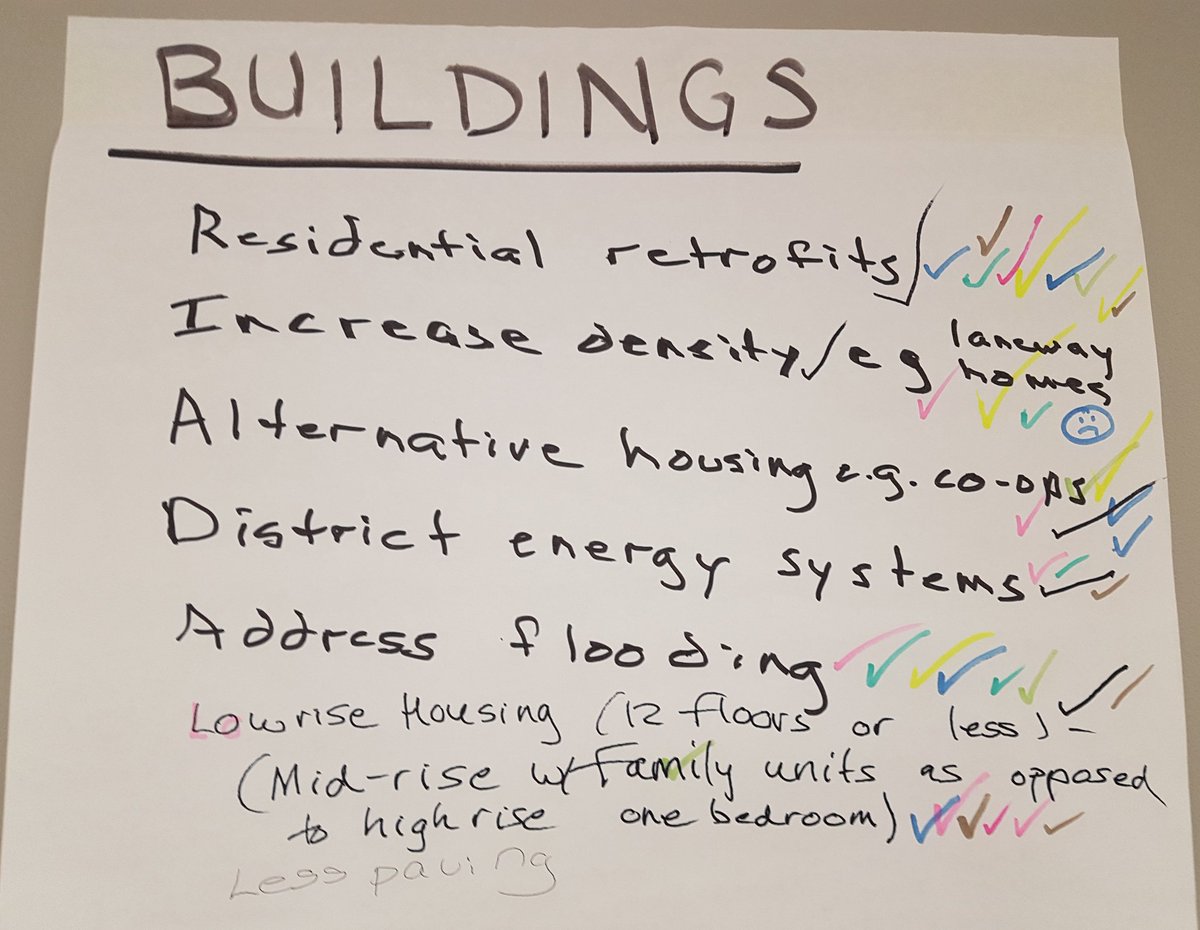 BUILDINGS
Residential retrofits
Increase density/eg laneway homes
Alternative housing e.g. co-ops
District energy systems
Address flooding
Lowrise Housing (12 floors or less) -
(Mid-rise w/ Family units as opposed
to high rise one bedroom)
Less paving